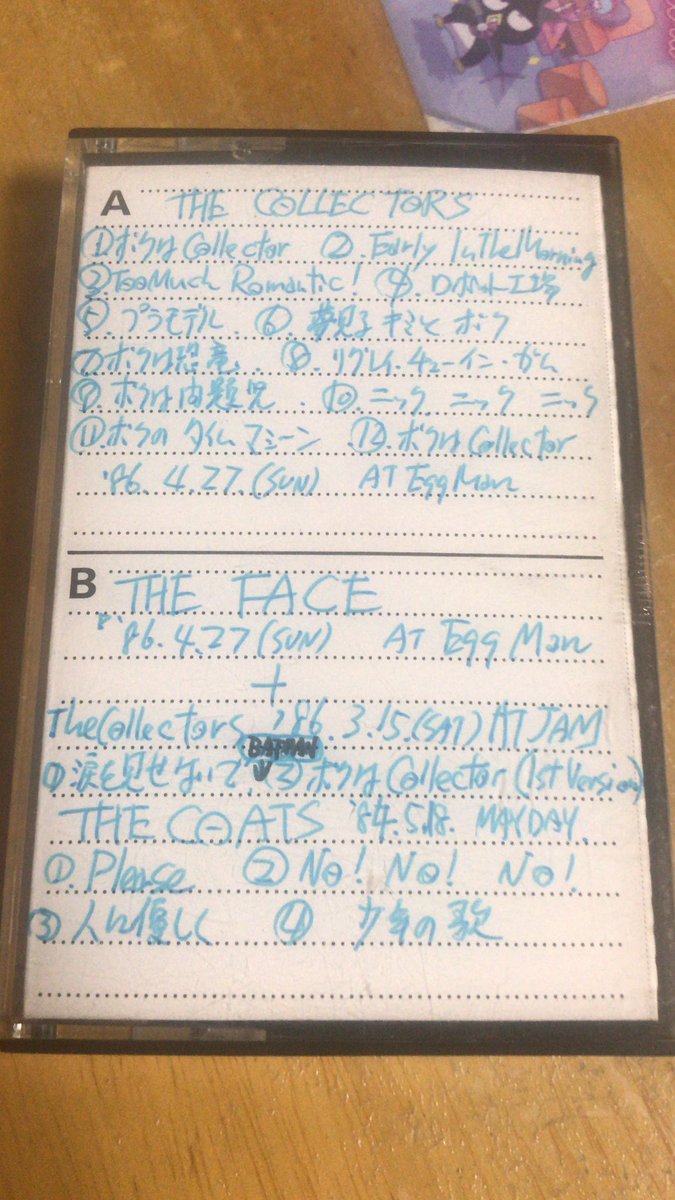 A THE COLLECTORS
①ボクはCollector ②.Early In The Morning
③Too Much Romantic! ④.ロボット工場
⑤.プラモデル. ⑥.夢見る キミと ボク
⑦ボクは恐竜. ⑧.リグレイ.チューイン.ガム
⑨.ボクは問題児. ⑩.ニック ニック ニック
⑪.ボクの タイム マシーン ⑫.ボクはCollector
'86. 4.27.(SUN) AT Egg Man
B THE FACE
'86.4.27(SUN) AT Egg Man
+
The Collectors '86.3.15.(SAT) AT JAM
BATMAN
①涙を見せないで. ↓ ③ボクはCollector(1st Version)
THE COATS '84.5.18. MAYDAY.
①.Please ②No! No! No!
③人に優しく ④ 少年の歌